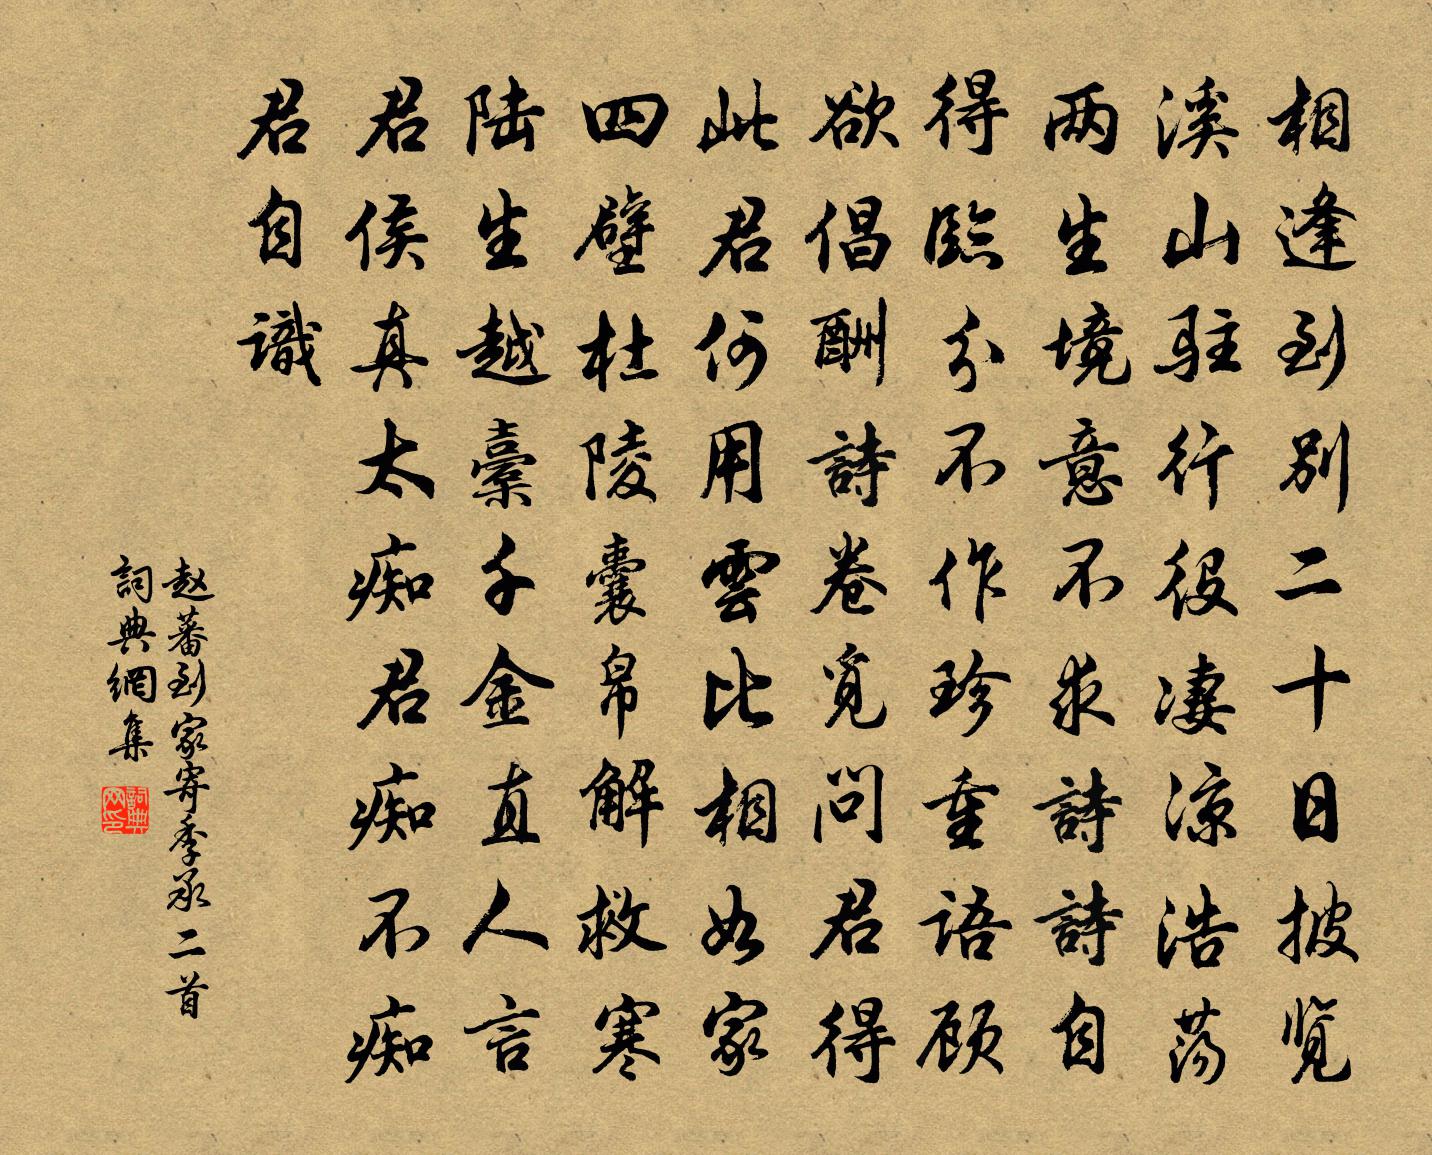 相逢到别二十日披览
溪山驻行役凄凉浩荡
两生境意不求詩詩自
得臨分不作珍重语顾
欲倡酬詩卷觅问君得
此君何用雲比相如家
四壁杜陵囊帛解救寒
陆生越橐千金直人言
君侯真太痴君痴不痴
君自識
赵蕃到家寄季承二首
詞典網集
詞典网印